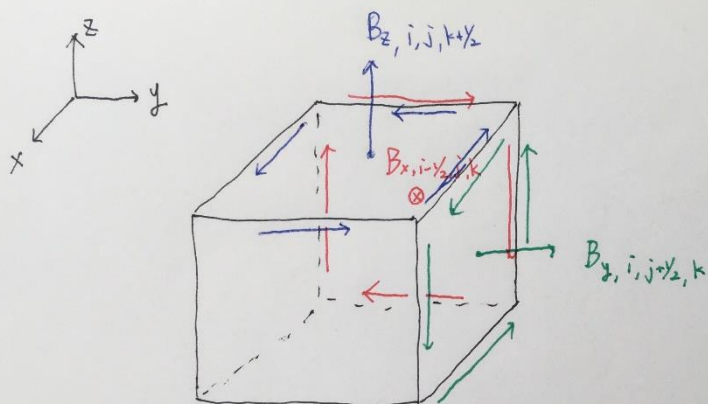 z
y
x
B_z, i, j, k+1/2
B_x, i-1/2, j, k
B_y, i, j+1/2, k